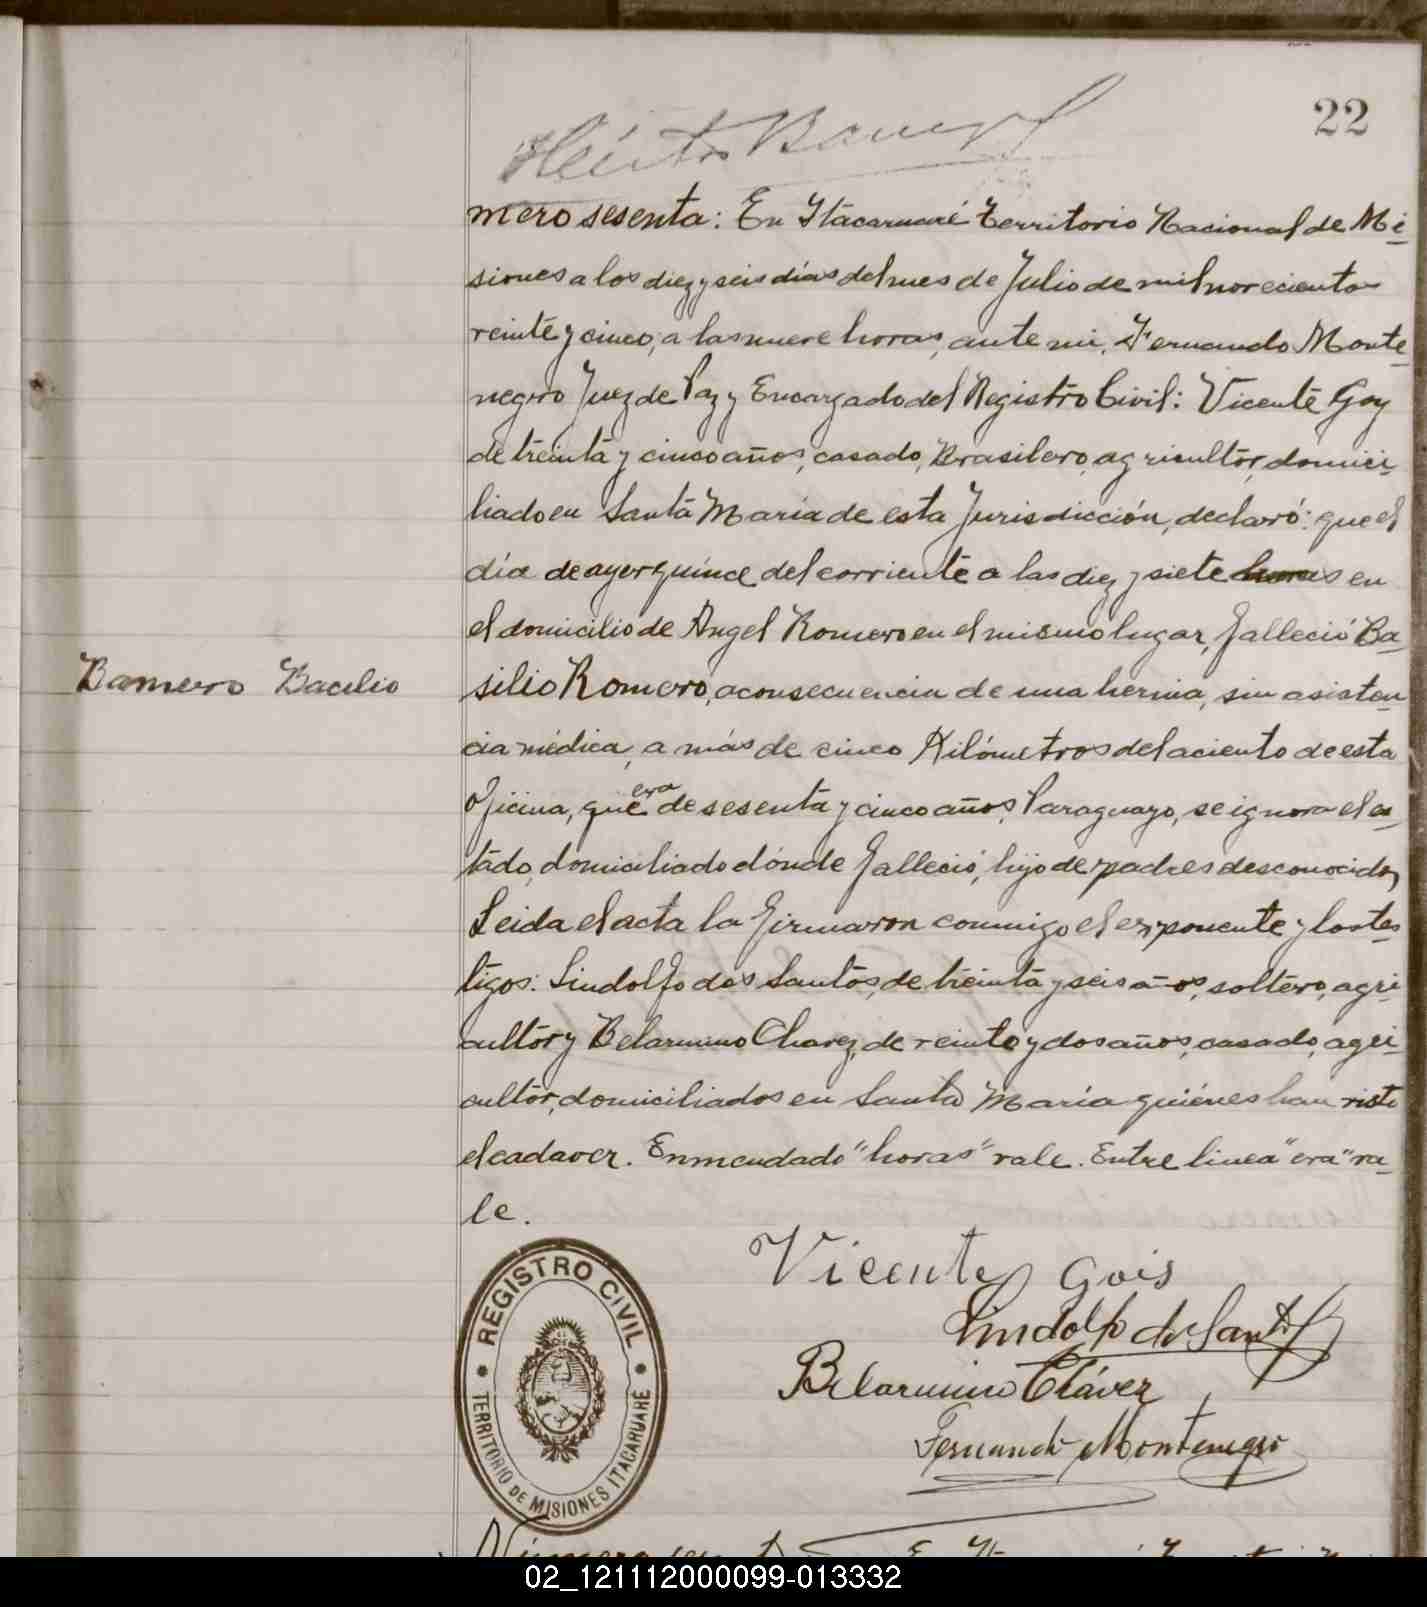 22
mero sesenta: En Itacaruaré Territorio Nacional de Mi-
siones a los diez y seis días del mes de Julio de mil novecientos
veinte y cinco, a las nueve horas, ante mi, Fernando Monte-
negro Juez de Paz y Encargado del Registro Civil: Vicente Goy
de treinta y cinco años, casado, Brasilero, agricultor, domici-
liado en Santa María de esta Jurisdicción, declaró: que el
día de ayer quince del corriente a las diez y siete horas en
el domicilio de Angel Romero en el mismo lugar, falleció Ba-
Bamero Bacilio
silio Romero, a consecuencia de una hernia, sin asisten-
cia médica, a más de cinco Kilómetros del aciento de esta
oficina, que era de sesenta y cinco años, Paraguayo, se ignora el es-
tado, domiciliado dónde falleció, hijo de padres desconocidos
Leida el acta la firmaron conmigo el exponente y los tes-
tigos: Lindolfo dos Santos, de treinta y seis años, soltero, agri-
cultor y Belarmino Chavez, de veinte y dos años, casado, agri-
cultor, domiciliados en Santa María quiénes han visto
el cadaver. Enmendado "horas" vale. Entre linea "era" va-
le.
Vicente Gois
Lindolfo do Santos
Belarmino Chávez
Fernando Montenegro
REGISTRO CIVIL
TERRITORIO DE MISIONES ITACARUARÉ
02_121112000099-013332